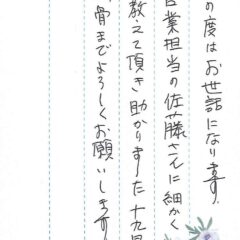 の度はお世話になります。
営業担当の佐藤さんに細かく
教えて頂き助かりました 十九日
骨までよろしくお願いします